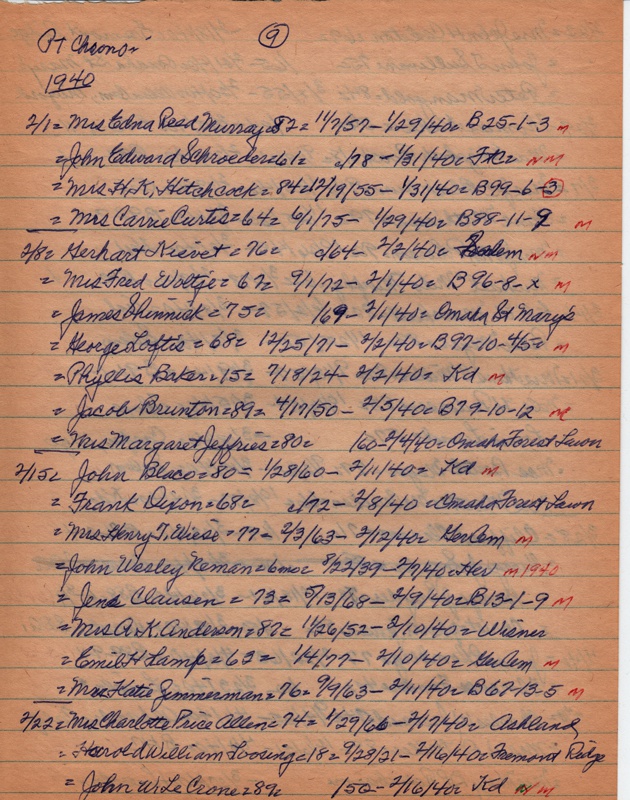 Pt Chrono: 9
1940
2/1 = Mrs Edna Read Murray = 82 = 11/7/57 – 1/29/40 = B25-1-3 m
= John Edward Schroeder = 61 = c/78 – 1/31/40 = nm
= Mrs H. K. Hitchcock = 84 = 12/19/55 – 1/31/40 = B99-6-3
= Mrs Carrie Curtis = 64 = 6/1/75 – 1/29/40 = B88-11-9 m
2/8 = Gerhart Kievet = 76 = c/64 – 2/2/40 = nm
= Mrs Fred Woltje = 67 = 9/1/72 – 2/1/40 = B96-8-x m
= James Shinnick = 75 = /69 – 2/1/40 = Omaha St Mary's
= George Loftis = 68 = 12/25/71 – 2/2/40 = B97-10-4/5 = m
= Phyllis Baker = 15 = 7/18/24 – 2/2/40 = Kd m
= Jacob Brunton = 89 = 4/17/50 – 2/5/40 = B79-10-12 m
= Mrs Margaret Jeffries = 80 = /60 – 2/4/40 = Omaha Forest Lawn
2/15 = John Blaco = 80 = 1/28/60 – 2/11/40 = Kd m
= Frank Dixon = 68 = c/72 – 2/8/40 = Omaha Forest Lawn
= Mrs Henry T. Wiese = 77 = 2/3/63 – 2/12/40 = GerCem m
= John Wesley Neman = 6mo = 8/22/39 – 2/7/40 = Her m 1940
= Jens Clausen = 73 = 5/13/68 – 2/9/40 = B13-1-9 m
= Mrs A. K. Anderson = 87 = 11/26/52 – 2/10/40 = Wisner
= Emil H Lamp = 63 = 1/4/77 – 2/10/40 = GerCem m
= Mrs Katie Zimmerman = 76 = 9/9/63 – 2/11/40 = B67-13-5 m
2/22 = Mrs Charlotte Price Allen = 74 = 1/29/66 – 2/17/40 = Ashland
= Harold William Loosing = 18 = 9/28/21 – 2/16/40 = Fremont Ridge
= John W. Le Crone = 89 = /50 – 2/16/40 = Kd m